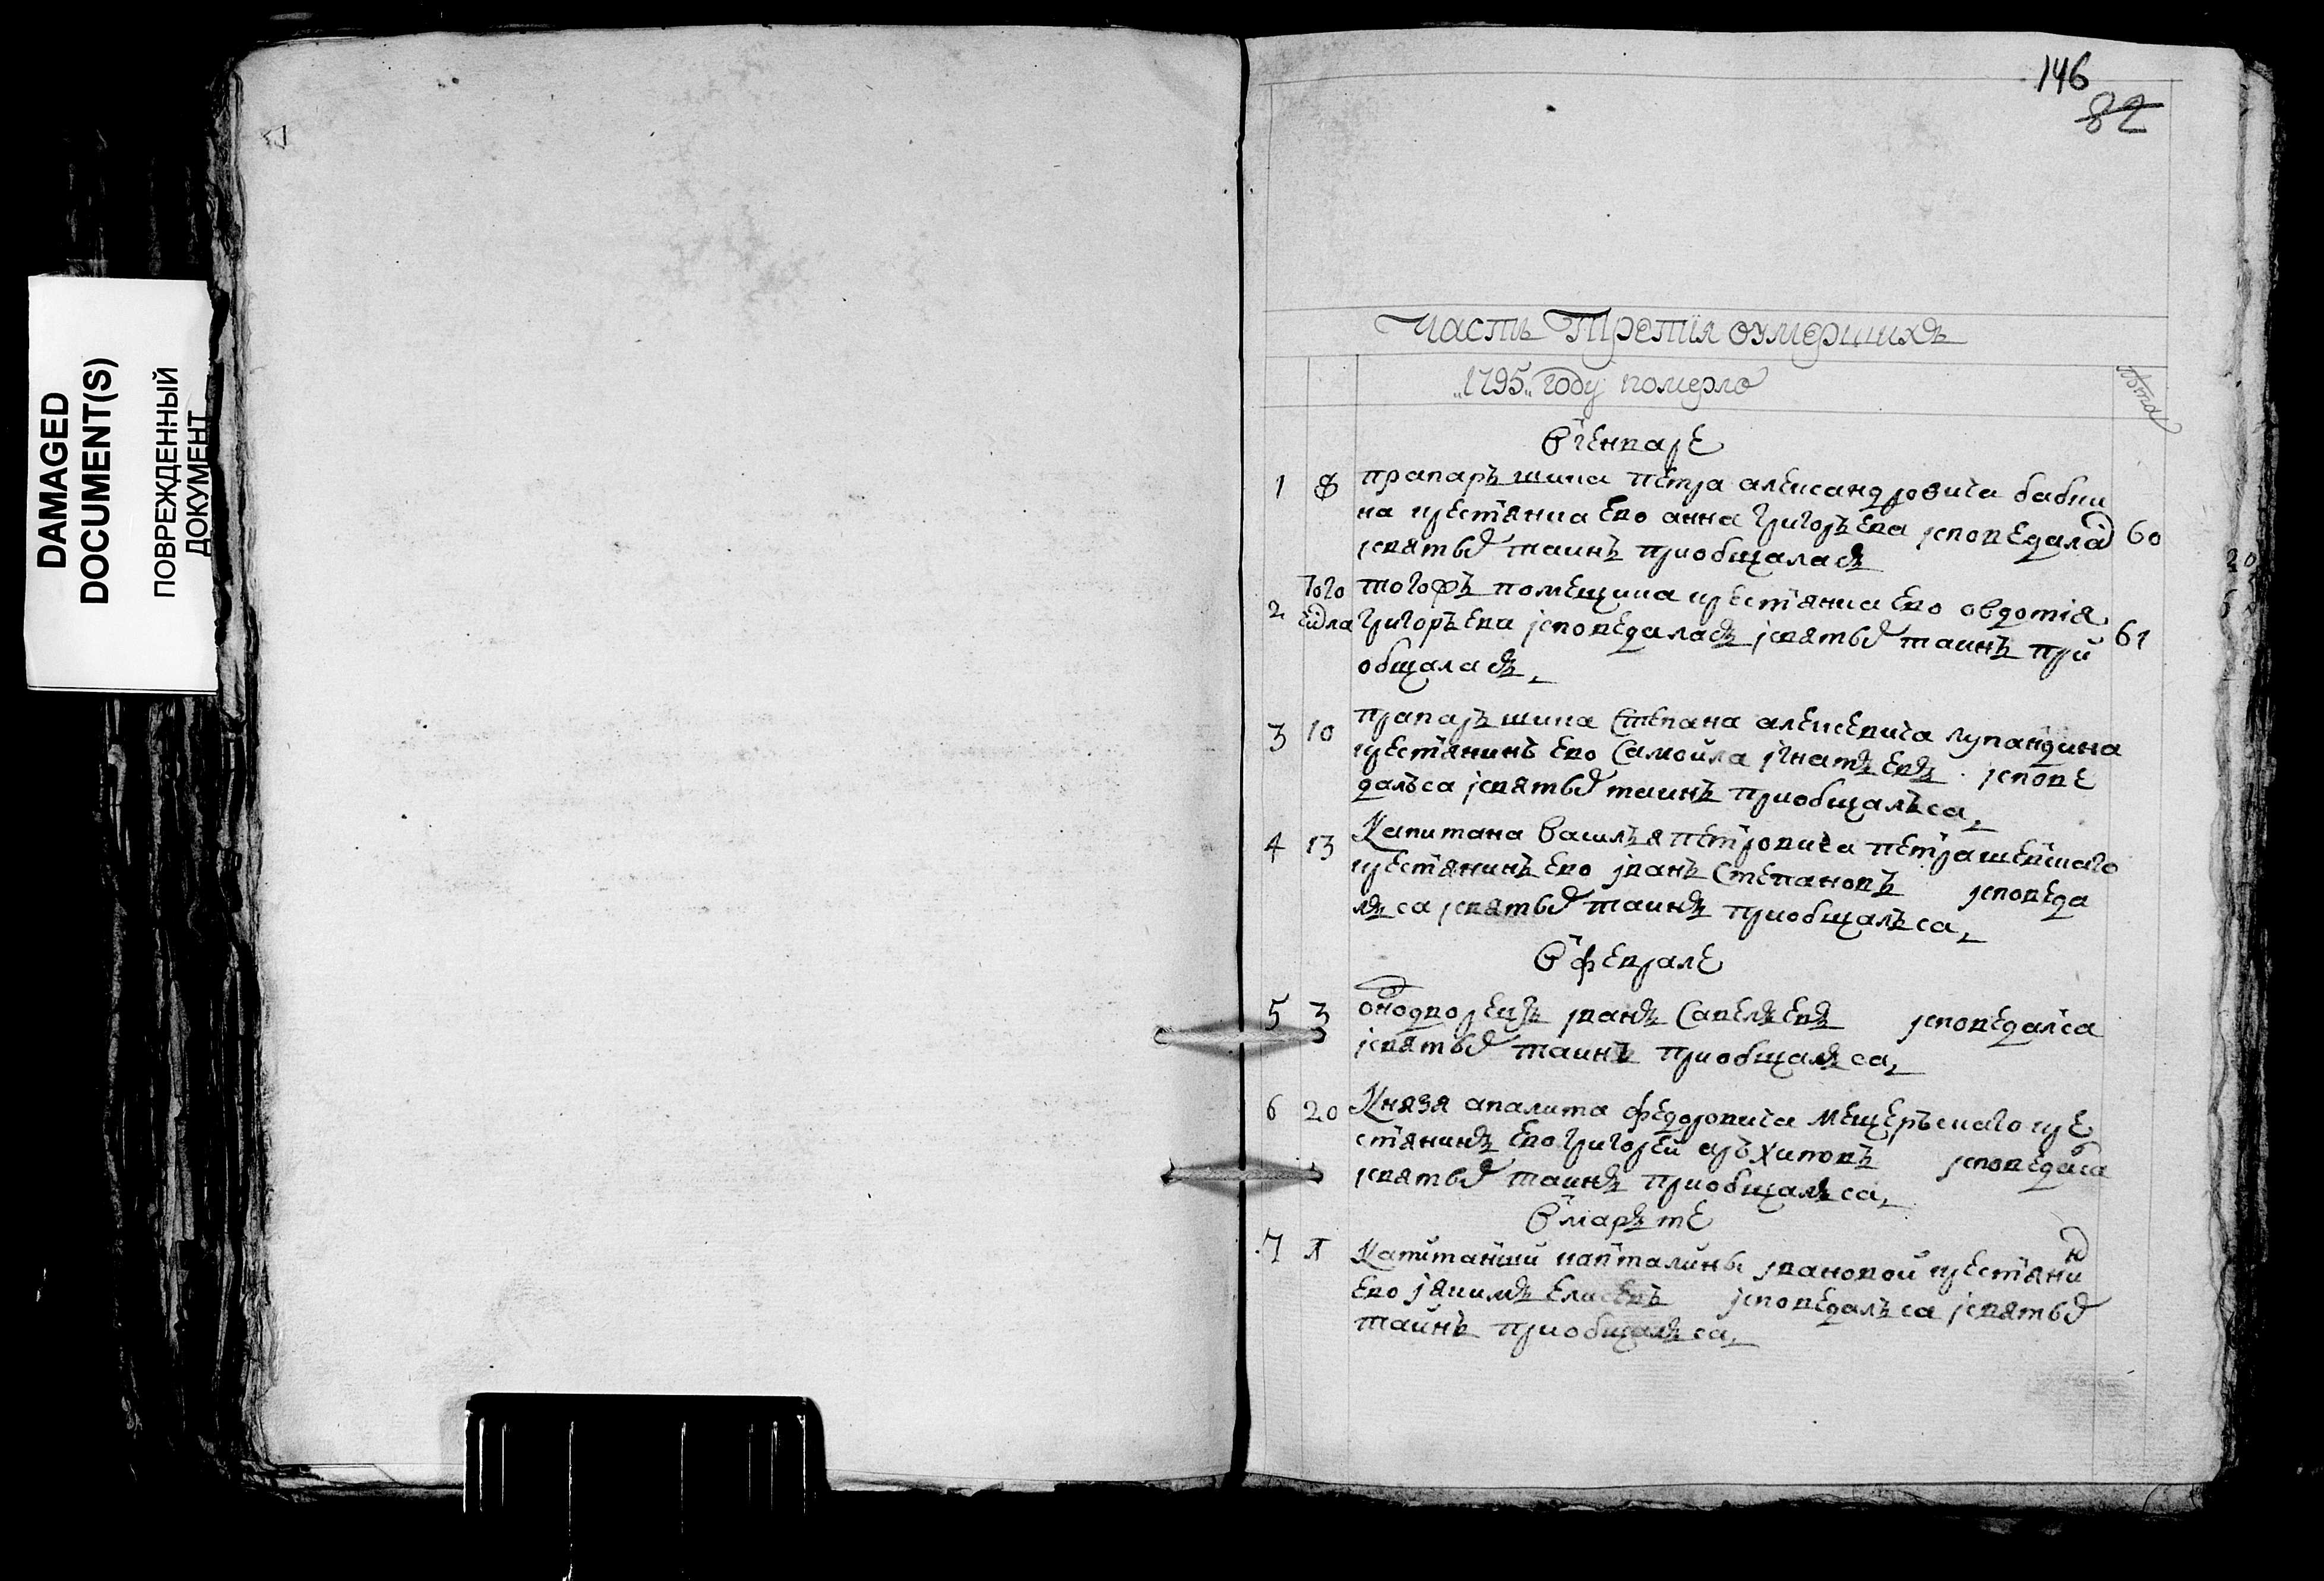 DAMAGED
DOCUMENT(S)
ПОВРЕЖДЕННЫЙ
ДОКУМЕНТ
146
82
Часть Третïя оумершихъ
1795 году померло лѣта
В генваре
1 8 прапаръшика петра александровича бабки
на крестьянка ево анна григоръева исповедалас 60
исвятых таинъ приобщаласъ
2 Того числа тогожъ помещика крестьянка ево овдотiя
григоръева исповедаласъ исвятых таинъ при 61
общаласъ
3 10 прапаръшика Степана алексевича лупандина
крестьянинъ ево Самойла игнатъевъ исповѣ
далъса исвятых таинъ приобщалъса
4 13 Капитана василъя петровича петрашевскаго
крестьянинъ ево иванъ Степановъ исповеда
лъса исвятых таинъ приобщалъса
В феврале
5 3 онодворецъ иванъ Савелъевъ исповедалса
исвятых таинъ приобщалъса
6 20 Князя апалита федоровича мещеръскаго кре
стьянинъ ево григорей исповедалса
исвятых таинъ приобщалъса
В маръте
7 1 Капитанши капталины ивановой крестьянин
ево иякимъ елисевъ исповедалъса исвятых
таинъ приобщалъса